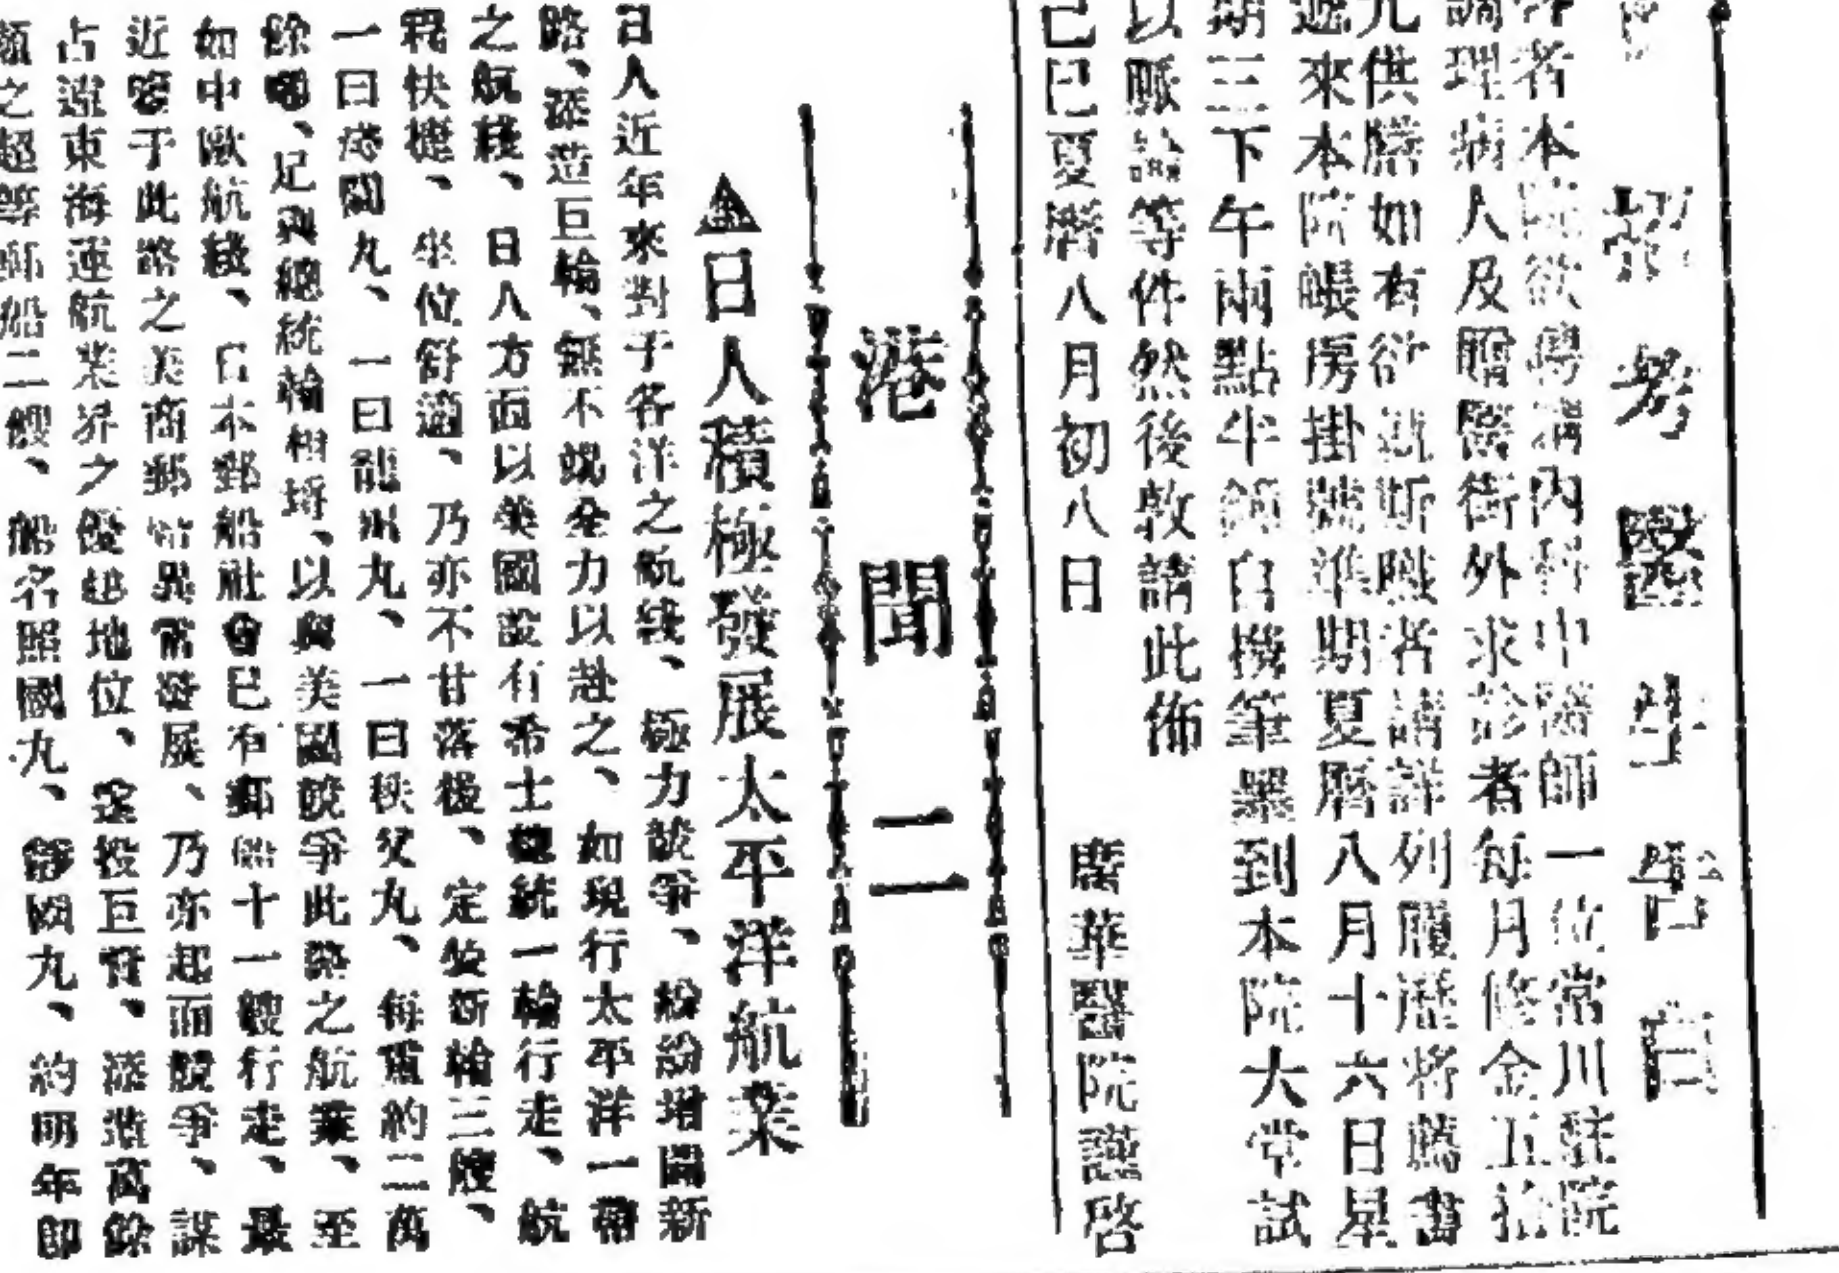 招考醫生告白
者本院欲聘請內科中醫師一位常川駐院
調理病人及贈醫街外求診者每月修金五拾
元供膳如有欲就斯職者請詳列履歷將薦書
遞來本院帳房掛號準期夏曆八月十六日星
期三下午兩點半鐘自攜筆墨到本院大堂試
以脈論等件然後敦請此佈
己巳夏曆八月初八日
廣華醫院謹啓
港聞二
▲日人積極發展太平洋航業
日人近年來對于各洋之航綫、極力競爭、紛紛增闢新
路、添造巨輪、無不竭全力以赴之、如現行太平洋一帶
之航綫、日人方面以美國設有希士總統一輪行走、航
程快捷、坐位舒適、乃亦不甘落後、定裝新輪三艘、
一曰淺間丸、一曰龍洲丸、一曰秩父丸、每重約二萬
餘噸、足與總統輪相埒、以與美國競爭此路之航業、至
如中歐航綫、日本郵船社會已有郵船十一艘行走、最
近鑒于此路之美商郵船異常發展、乃亦起而競爭、謀
占遠東海運航業界之優越地位、定投巨資、添造萬餘
噸之超等郵船二艘、船名照國丸、靜國丸、約明年即